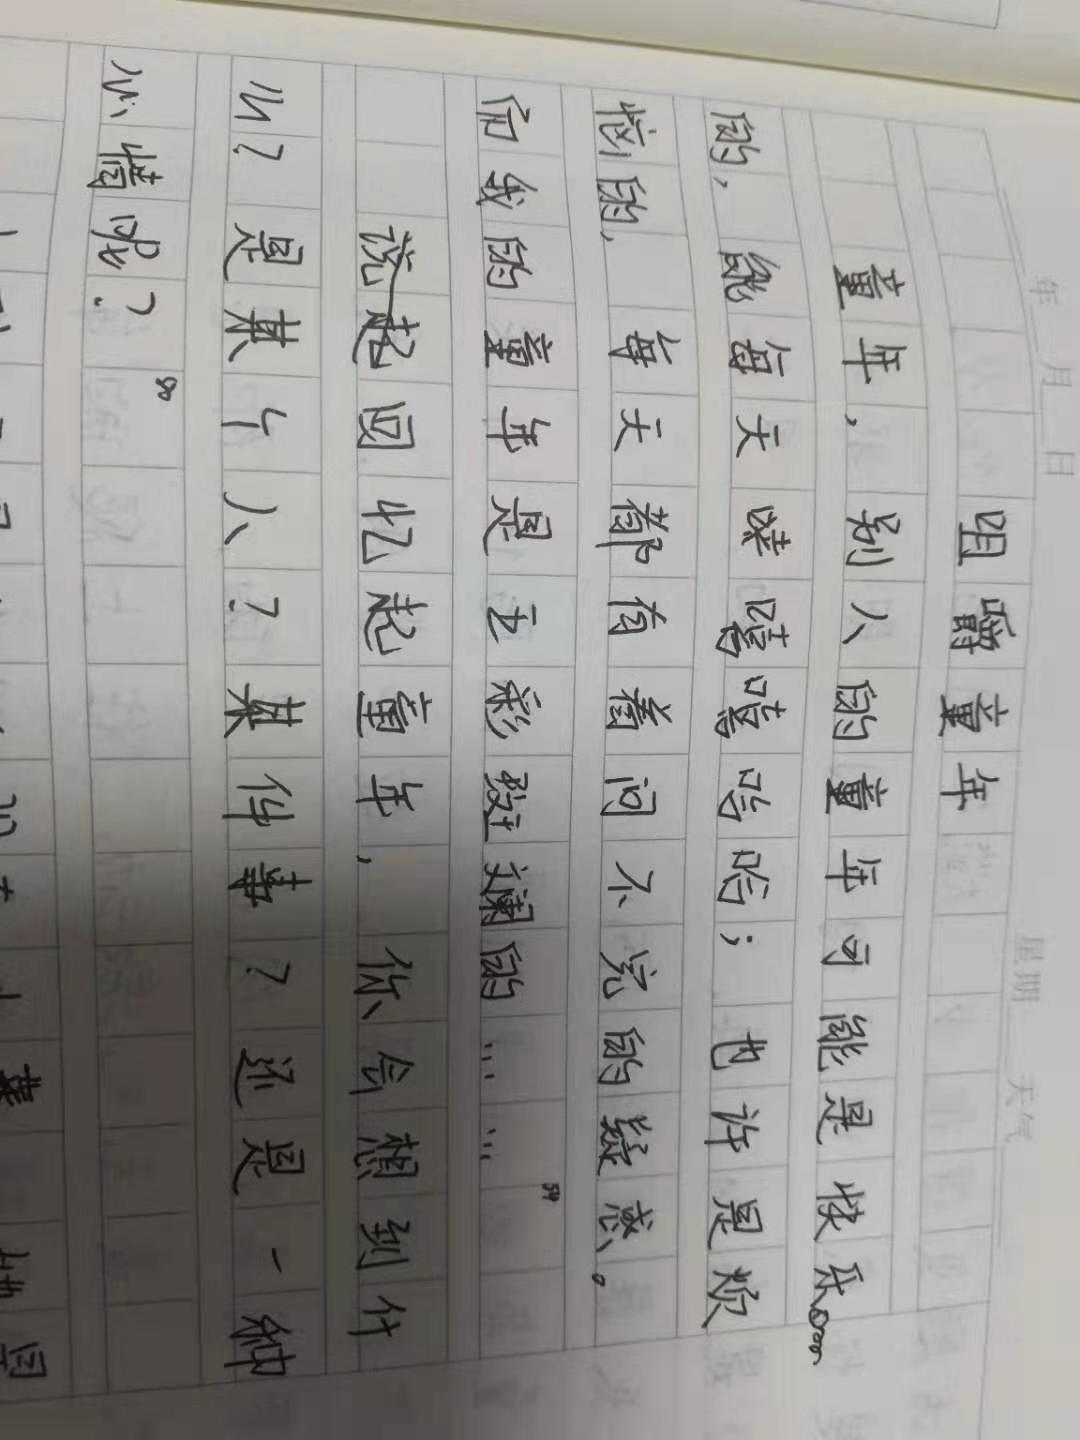 年 月 日 星期 天气
咀嚼童年
童年，别人的童年可能是快乐
的，能每天嘻嘻嘻哈哈；也许是烦
恼的，每天都有着问不完的疑惑。
而我的童年是五彩斑斓的……
54
说起回忆起童年，你会想到什
么？是某个人？某件事？还是一种
心情呢？